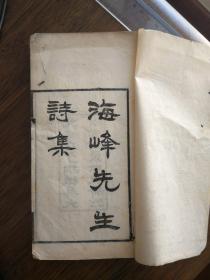 海峰先生
詩集